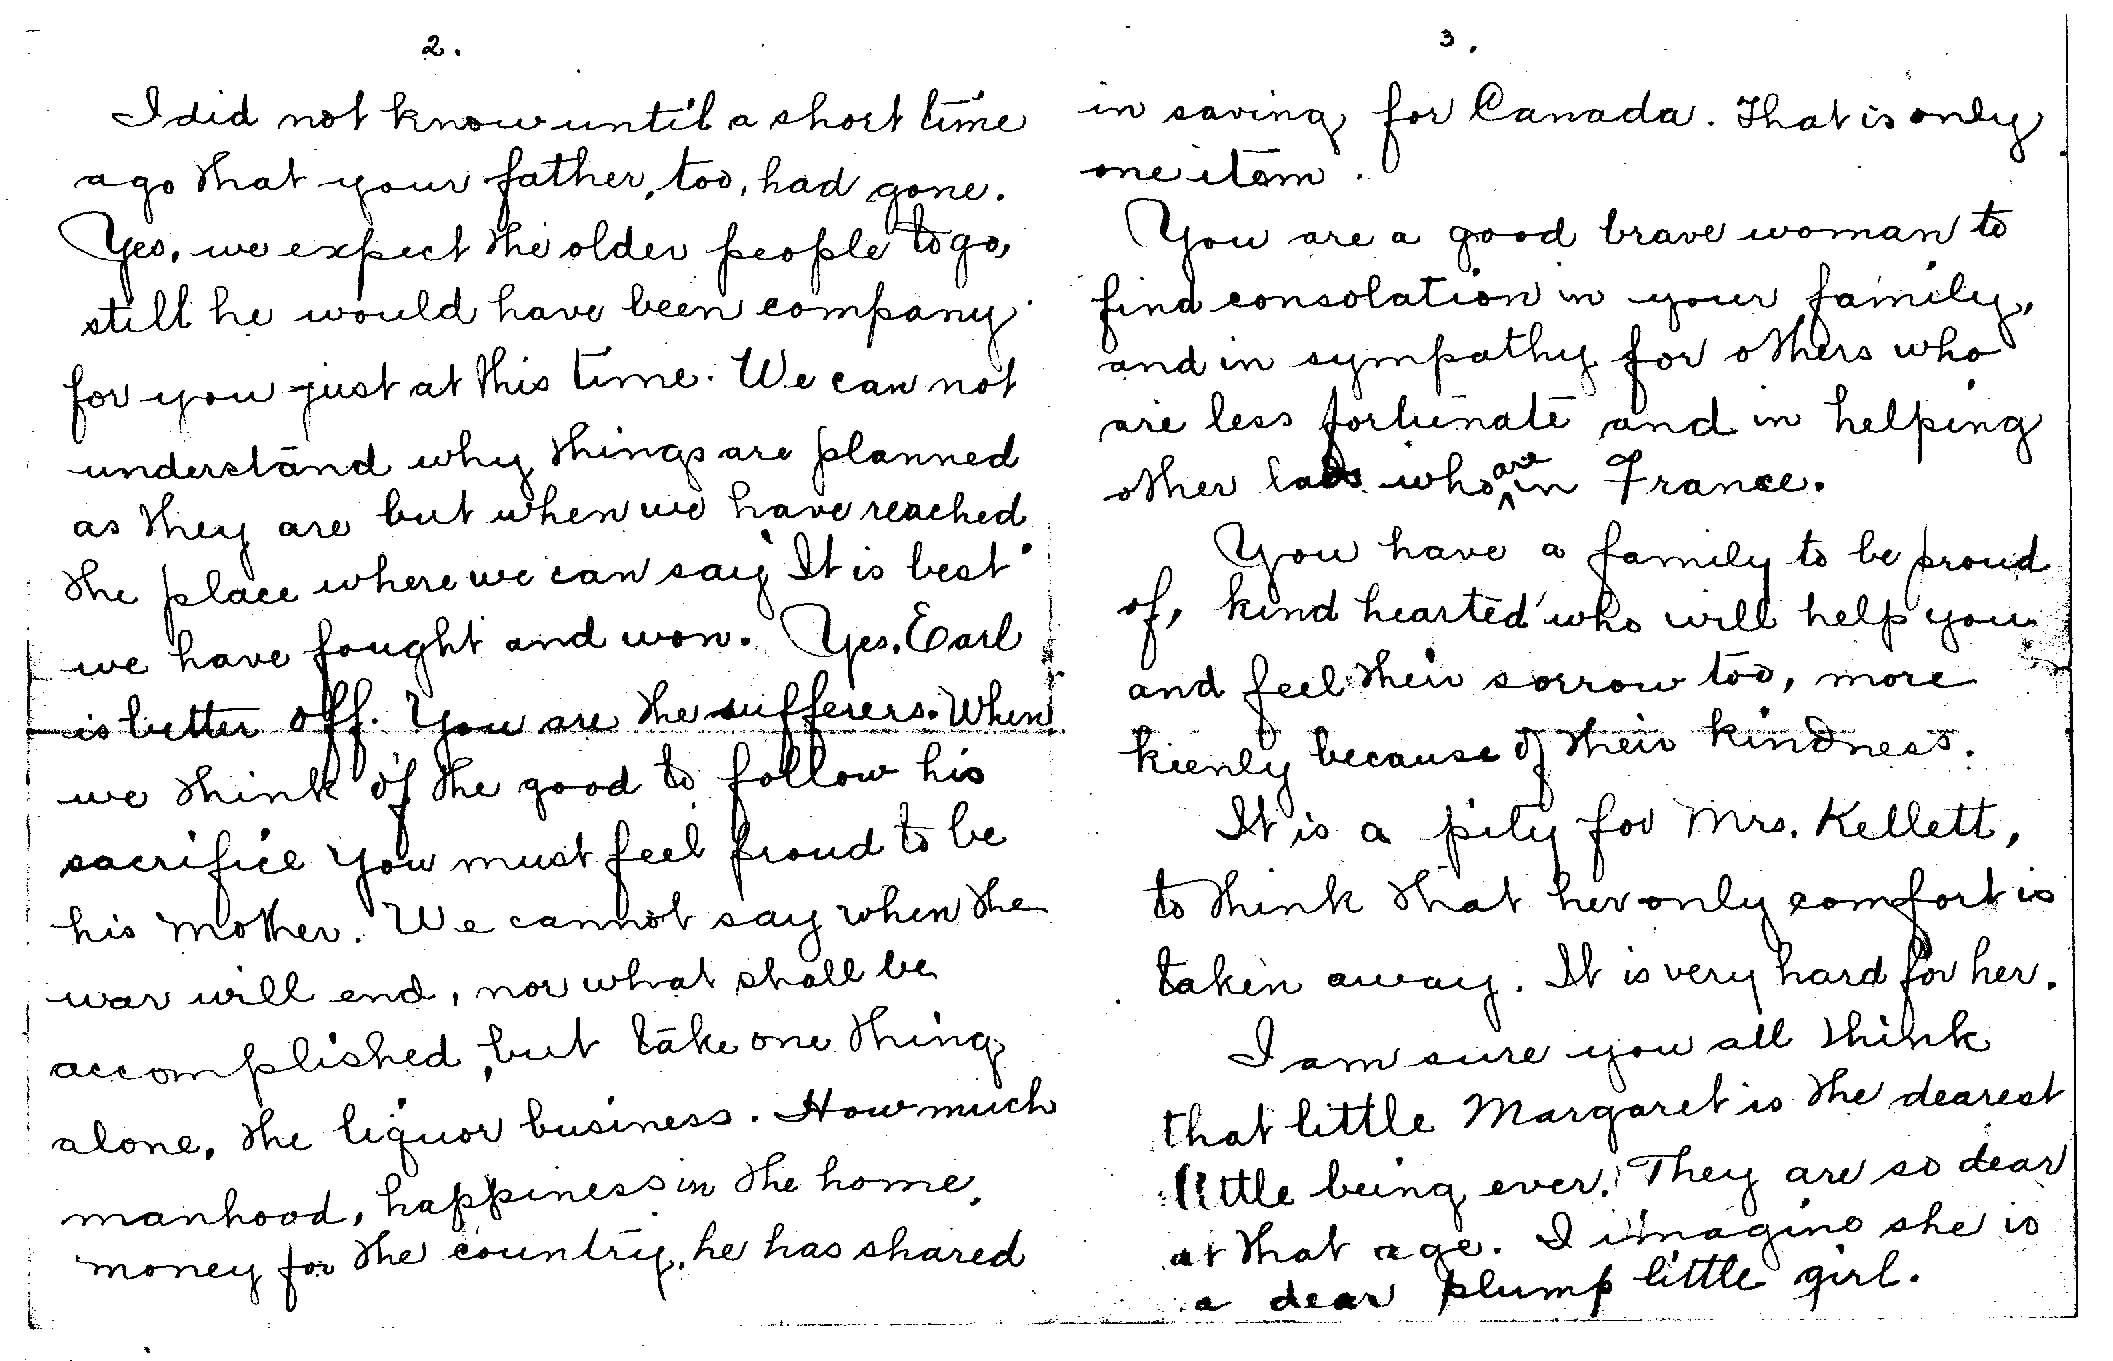 2.
I did not know until a short time
ago that your father, too, had gone.
Yes, we expect the older people to go,
still he would have been company
for you just at this time. We can not
understand why things are planned
as they are but when we have reached
the place where we can say "It is best"
we have fought and won. Yes, Earl
is better off. You are the sufferers. When
we think of the good to follow his
sacrifice you must feel proud to be
his mother. We cannot say when the
war will end, nor what shall be
accomplished, but take one thing
alone, the liquor business. How much
manhood, happiness in the home,
money for the country, he has shared
3.
in saving for Canada. That is only
one item.
You are a good brave woman to
find consolation in your family,
and in sympathy for others who
are less fortunate and in helping
other lads who are in France.
You have a family to be proud
of, kind hearted who will help you
and feel their sorrow too, more
kienly because of their kindness.
It is a pity for Mrs. Kellett,
to think that her only comfort is
taken away. It is very hard for her.
I am sure you all think
that little Margaret is the dearest
little being ever. They are so dear
at that age. I imagine she is
a dear plump little girl.